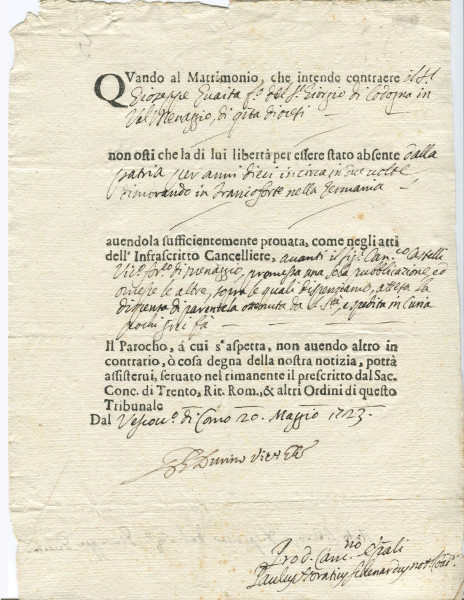 QVando al Matrimonio, che intende contraere il S.r
Gioseppe Guaita f.o del S.r Giorgio di Codogna in
Val Menaggio, di q.ta diocesi
non osti che la di lui libertà per essere stato absente dalla
patria per anni dieci in circa in due volte
dimorando in Francoforte nella Germania
auendola sufficientemente prouata, come negli atti
dell' Infrascritto Cancelliere, auanti il Sig.r Can.co Castelli
Vic.o for.o di Menaggio, premessa una sola pubblicazione, ed
omesse le altre, sopra le quali dispensiamo, attesa la
dispensa di parentela ottenuta da e spedita in Curia
pochi fa
Il Parocho, á cui s'aspetta, non auendo altro in
contrario, ò cosa degna della nostra notizia, potrà
assisterui, seruato nel rimanente il prescritto dal Sac.
Conc. di Trento, Rit. Rom., & altri Ordini di questo
Tribunale
Dal Vescou.o di Como 20. Maggio 1723.
Durino Vic.
Prod. Canc.
Paulus Horatius not.